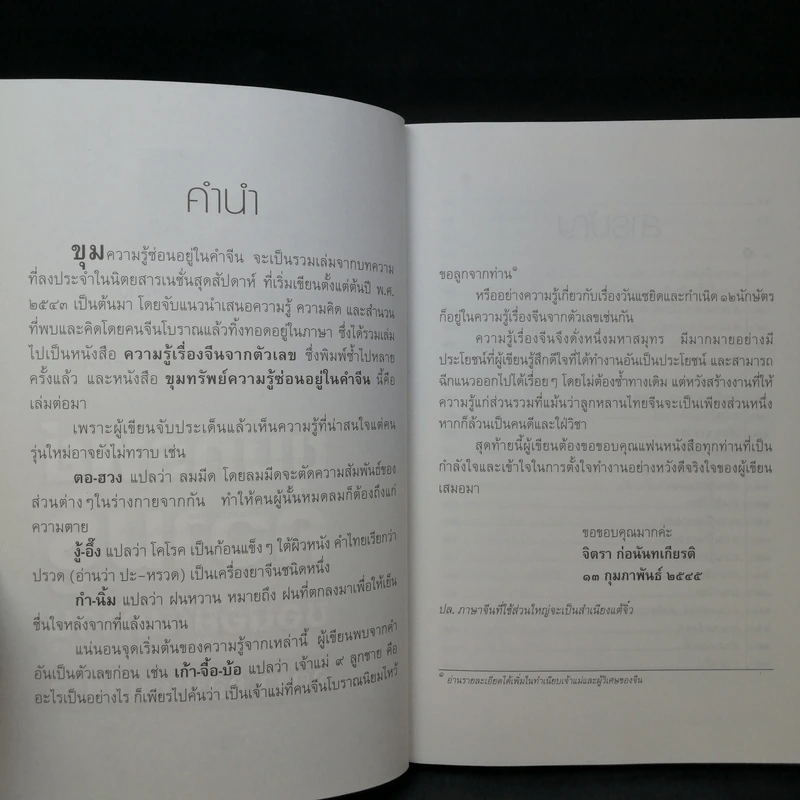 คำนำ
ขุมความรู้ซ่อนอยู่ในคำจีน จะเป็นรวมเล่มจากบทความ
ที่ลงประจำในนิตยสารเนชั่นสุดสัปดาห์ ที่เริ่มเขียนตั้งแต่ต้นปี พ.ศ.
๒๕๔๓ เป็นต้นมา โดยจับแนวนำเสนอความรู้ ความคิด และสำนวน
ที่พบและคิดโดยคนจีนโบราณแล้วทิ้งทอดอยู่ในภาษา ซึ่งได้รวมเล่ม
ไปเป็นหนังสือ ความรู้เรื่องจีนจากตัวเลข ซึ่งพิมพ์ซ้ำไปหลาย
ครั้งแล้ว และหนังสือ ขุมทรัพย์ความรู้ซ่อนอยู่ในคำจีน นี้คือ
เล่มต่อมา
เพราะผู้เขียนจับประเด็นแล้วเห็นความรู้ที่น่าสนใจแต่คน
รุ่นใหม่อาจยังไม่ทราบ เช่น
ตอ-ฮวง แปลว่า ลมมีด โดยลมมีดจะตัดความสัมพันธ์ของ
ส่วนต่างๆในร่างกายจากกัน ทำให้คนผู้นั้นหมดลมก็ต้องถึงแก่
ความตาย
งู้-อึ๊ง แปลว่า โคโรค เป็นก้อนแข็งๆ ใต้ผิวหนัง คำไทยเรียกว่า
ปรวด (อ่านว่า ปะ-หรวด) เป็นเครื่องยาจีนชนิดหนึ่ง
กำ-นิ้ม แปลว่า ฝนหวาน หมายถึง ฝนที่ตกลงมาเพื่อให้เย็น
ชื่นใจหลังจากที่แล้งมานาน
แน่นอนจุดเริ่มต้นของความรู้จากเหล่านี้ ผู้เขียนพบจากคำ
อันเป็นตัวเลขก่อน เช่น เก้า-จื้อ-บ้อ แปลว่า เจ้าแม่ ๙ ลูกชาย คือ
อะไรเป็นอย่างไร ก็เพียรไปค้นว่า เป็นเจ้าแม่ที่คนจีนโบราณนิยมไหว้
ขอลูกจากท่าน๑
หรืออย่างความรู้เกี่ยวกับเรื่องวันแซยิดและกำเนิด ๑๒นักษัตร
ก็อยู่ในความรู้เรื่องจีนจากตัวเลขเช่นกัน
ความรู้เรื่องจีนจึงดั่งหนึ่งมหาสมุทร มีมากมายอย่างมี
ประโยชน์ที่ผู้เขียนรู้สึกดีใจที่ได้ทำงานอันเป็นประโยชน์ และสามารถ
ฉีกแนวออกไปได้เรื่อยๆ โดยไม่ต้องซ้ำทางเดิม แต่หวังสร้างงานที่ให้
ความรู้แก่ส่วนรวมที่แม้นว่าลูกหลานไทยจีนจะเป็นเพียงส่วนหนึ่ง
หากก็ล้วนเป็นคนดีและใฝ่วิชา
สุดท้ายนี้ผู้เขียนต้องขอขอบคุณแฟนหนังสือทุกท่านที่เป็น
กำลังใจและเข้าใจในการตั้งใจทำงานอย่างหวังดีจริงใจของผู้เขียน
เสมอมา
ขอขอบคุณมากค่ะ
จิตรา ก่อนันทเกียรติ
๑๓ กุมภาพันธ์ ๒๕๔๕
ปล. ภาษาจีนที่ใช้ส่วนใหญ่จะเป็นสำเนียงแต้จิ๋ว
๑ อ่านรายละเอียดได้เพิ่มในทำเนียบเจ้าแม่และผู้วิเศษของจีน